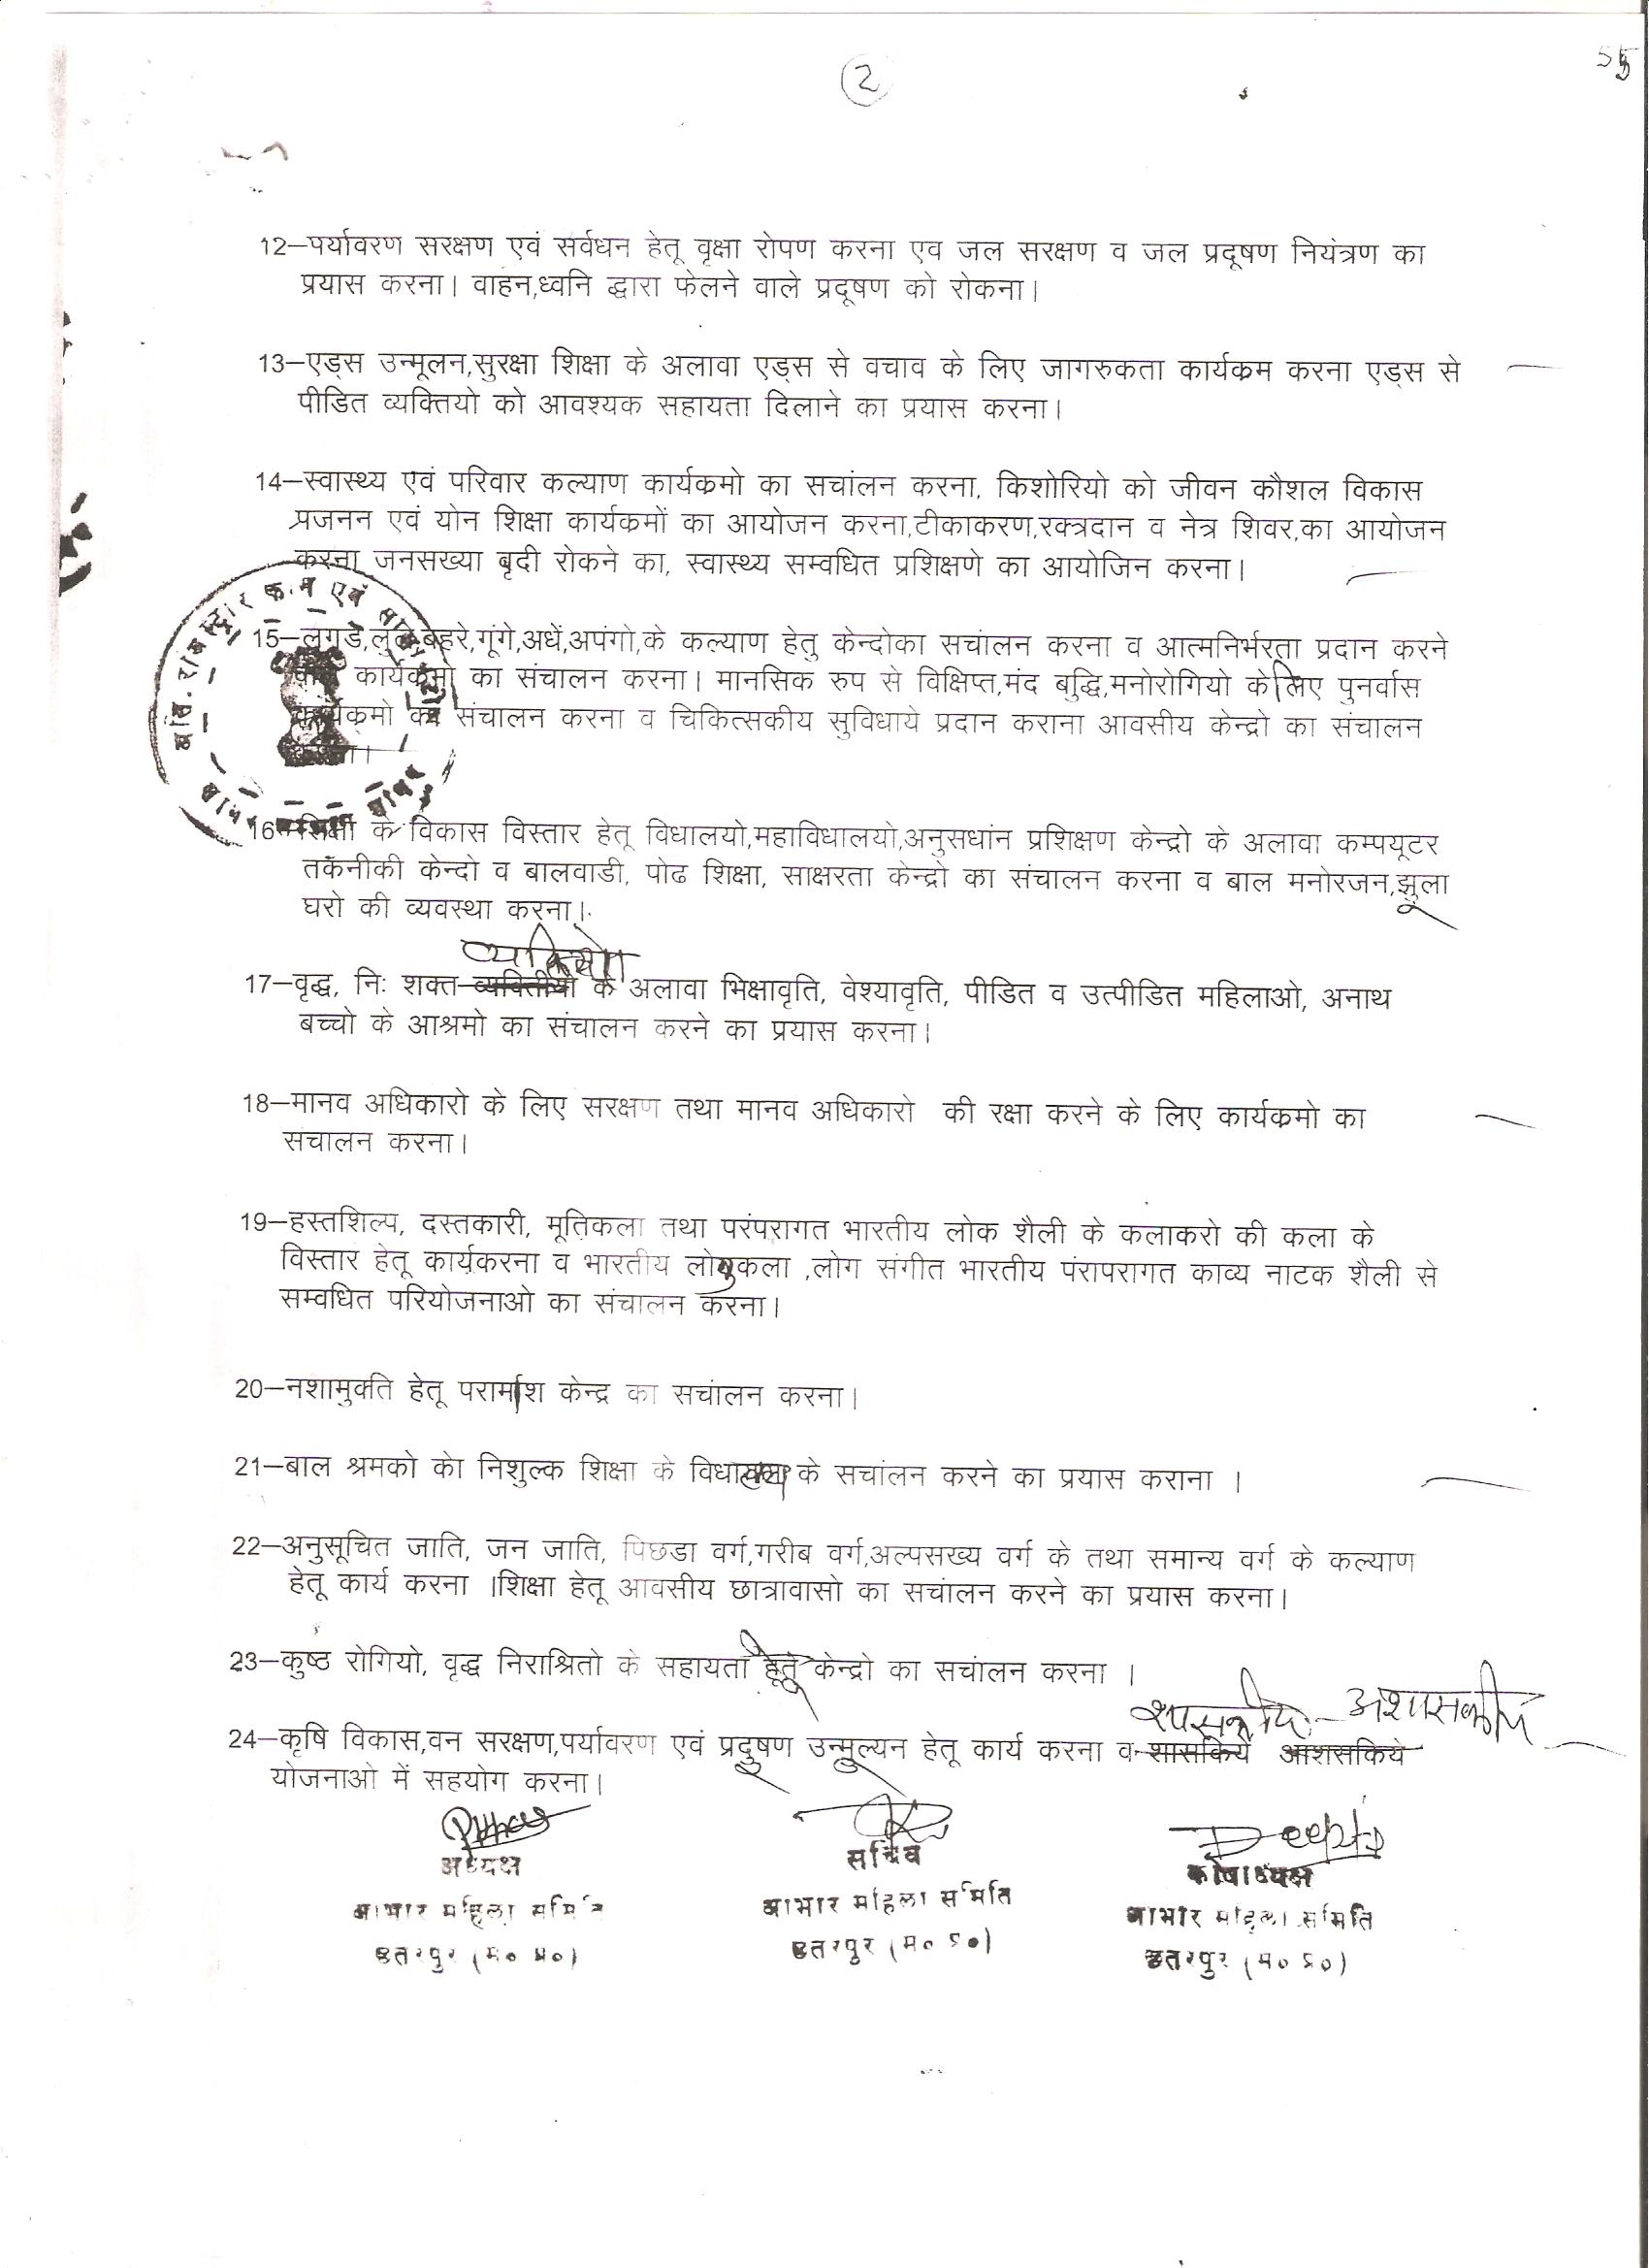 2
55
12–पर्यावरण सरक्षण एवं सर्वधन हेतू वृक्षा रोपण करना एव जल सरक्षण व जल प्रदूषण नियंत्रण का
प्रयास करना। वाहन,ध्वनि द्वारा फेलने वाले प्रदूषण को रोकना।
13–एड्स उन्मूलन,सुरक्षा शिक्षा के अलावा एड्स से वचाव के लिए जागरुकता कार्यक्रम करना एड्स से
पीडित व्यक्तियो को आवश्यक सहायता दिलाने का प्रयास करना।
14–स्वास्थ्य एवं परिवार कल्याण कार्यक्रमो का सचांलन करना, किशोरियो को जीवन कौशल विकास
प्रजनन एवं योन शिक्षा कार्यक्रमों का आयोजन करना,टीकाकरण,रक्त्रदान व नेत्र शिवर,का आयोजन
करना जनसख्या बृदी रोकने का, स्वास्थ्य सम्वधित प्रशिक्षणे का आयोजिन करना।
15–लगडे,लुले,बहरे,गूंगे,अधें,अपंगो,के कल्याण हेतु केन्दोका सचांलन करना व आत्मनिर्भरता प्रदान करने
वाले कार्यक्रमो का संचालन करना। मानसिक रुप से विक्षिप्त,मंद बुद्धि,मनोरोगियो के लिए पुनर्वास
कार्यक्रमो का संचालन करना व चिकित्सकीय सुविधाये प्रदान कराना आवसीय केन्द्रो का संचालन
करना।
16–शिक्षा के विकास विस्तार हेतू विधालयो,महाविधालयो,अनुसधांन प्रशिक्षण केन्द्रो के अलावा कम्पयूटर
तकनीकी केन्दो व बालवाडी, पोढ शिक्षा, साक्षरता केन्द्रो का संचालन करना व बाल मनोरजन,झुला
घरो की व्यवस्था करना।
व्यक्तियो
17–वृद्ध, निः शक्त व्यक्तियो के अलावा भिक्षावृति, वेश्यावृति, पीडित व उत्पीडित महिलाओ, अनाथ
बच्चो के आश्रमो का संचालन करने का प्रयास करना।
18–मानव अधिकारो के लिए सरक्षण तथा मानव अधिकारो की रक्षा करने के लिए कार्यक्रमो का
सचालन करना।
19–हस्तशिल्प, दस्तकारी, मूतिकला तथा परंपरागत भारतीय लोक शैली के कलाकरो की कला के
विस्तार हेतू कार्यकरना व भारतीय लोककला ,लोग संगीत भारतीय पंरापरागत काव्य नाटक शैली से
सम्वधित परियोजनाओ का संचालन करना।
20–नशामुक्ति हेतू परार्माश केन्द्र का सचांलन करना।
21–बाल श्रमको केा निशुल्क शिक्षा के विधालय के सचांलन करने का प्रयास कराना ।
22–अनुसूचित जाति, जन जाति, पिछडा वर्ग,गरीब वर्ग,अल्पसख्य वर्ग के तथा समान्य वर्ग के कल्याण
हेतू कार्य करना ।शिक्षा हेतू आवसीय छात्रावासो का सचांलन करने का प्रयास करना।
23–कुष्ठ रोगियो, वृद्ध निराश्रितो के सहायता हेतु केन्द्रो का सचांलन करना ।
शासकीय अशासकीय
24–कृषि विकास,वन सरक्षण,पर्यावरण एवं प्रदुषण उन्मुल्यन हेतू कार्य करना व शासकिये आशसकिये
योजनाओ में सहयोग करना।
अध्यक्ष
आभार महिला समिति
छतरपुर (म० प्र०)
सचिव
आभार महिला समिति
छतरपुर (म० प्र०)
Deepta
कोषाध्यक्ष
आभार महिला समिति
छतरपुर (म० प्र०)